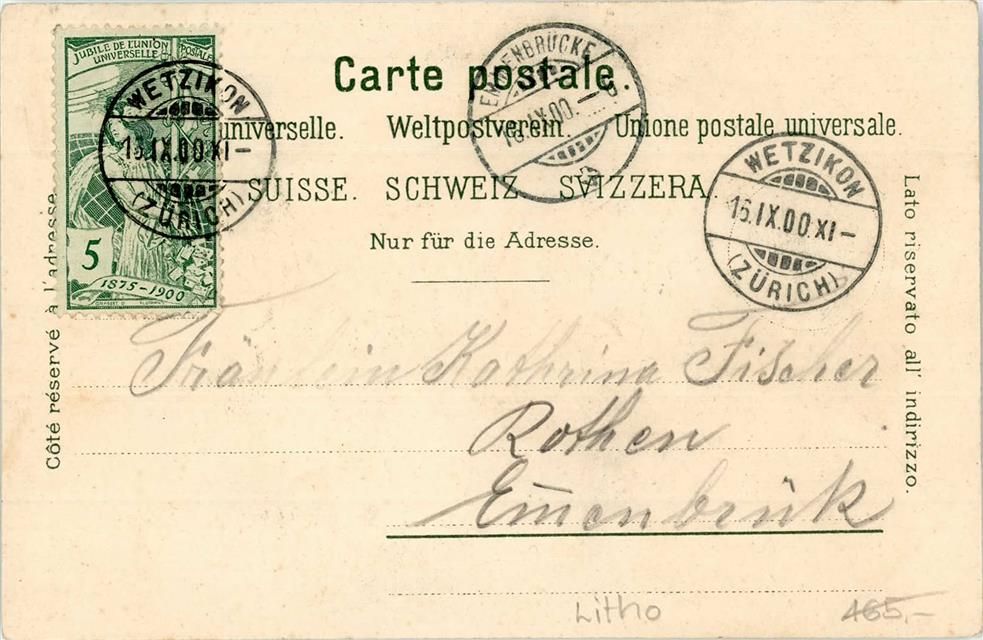 JUBILÉ DE L'UNION
POSTALE
UNIVERSELLE
5
1875-1900
WETZIKON
15.IX.00.XI-
(ZÜRICH)
Carte postale.
EMMENBRÜCKE
IX.00.
universelle. Weltpostverein. Unione postale universale.
SUISSE. SCHWEIZ SVIZZERA.
Nur für die Adresse.
WETZIKON
15.IX.00.XI-
(ZÜRICH)
Côté réservé à l'adresse
Lato riservato all' indirizzo.
Fräulein Kathrina Fischer
Rothen
Em̅enbrük
Litho
465,-